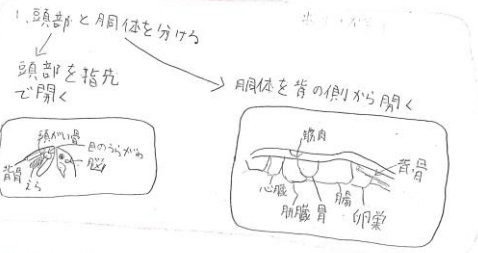 1. 頭部と胴体を分ける
頭部を指先
で開く
胴体を背の側から開く
頭がい骨
目のうらがわ
脳
背骨
えら
筋肉
背骨
心臓
肝臓
胃
腸
卵巣